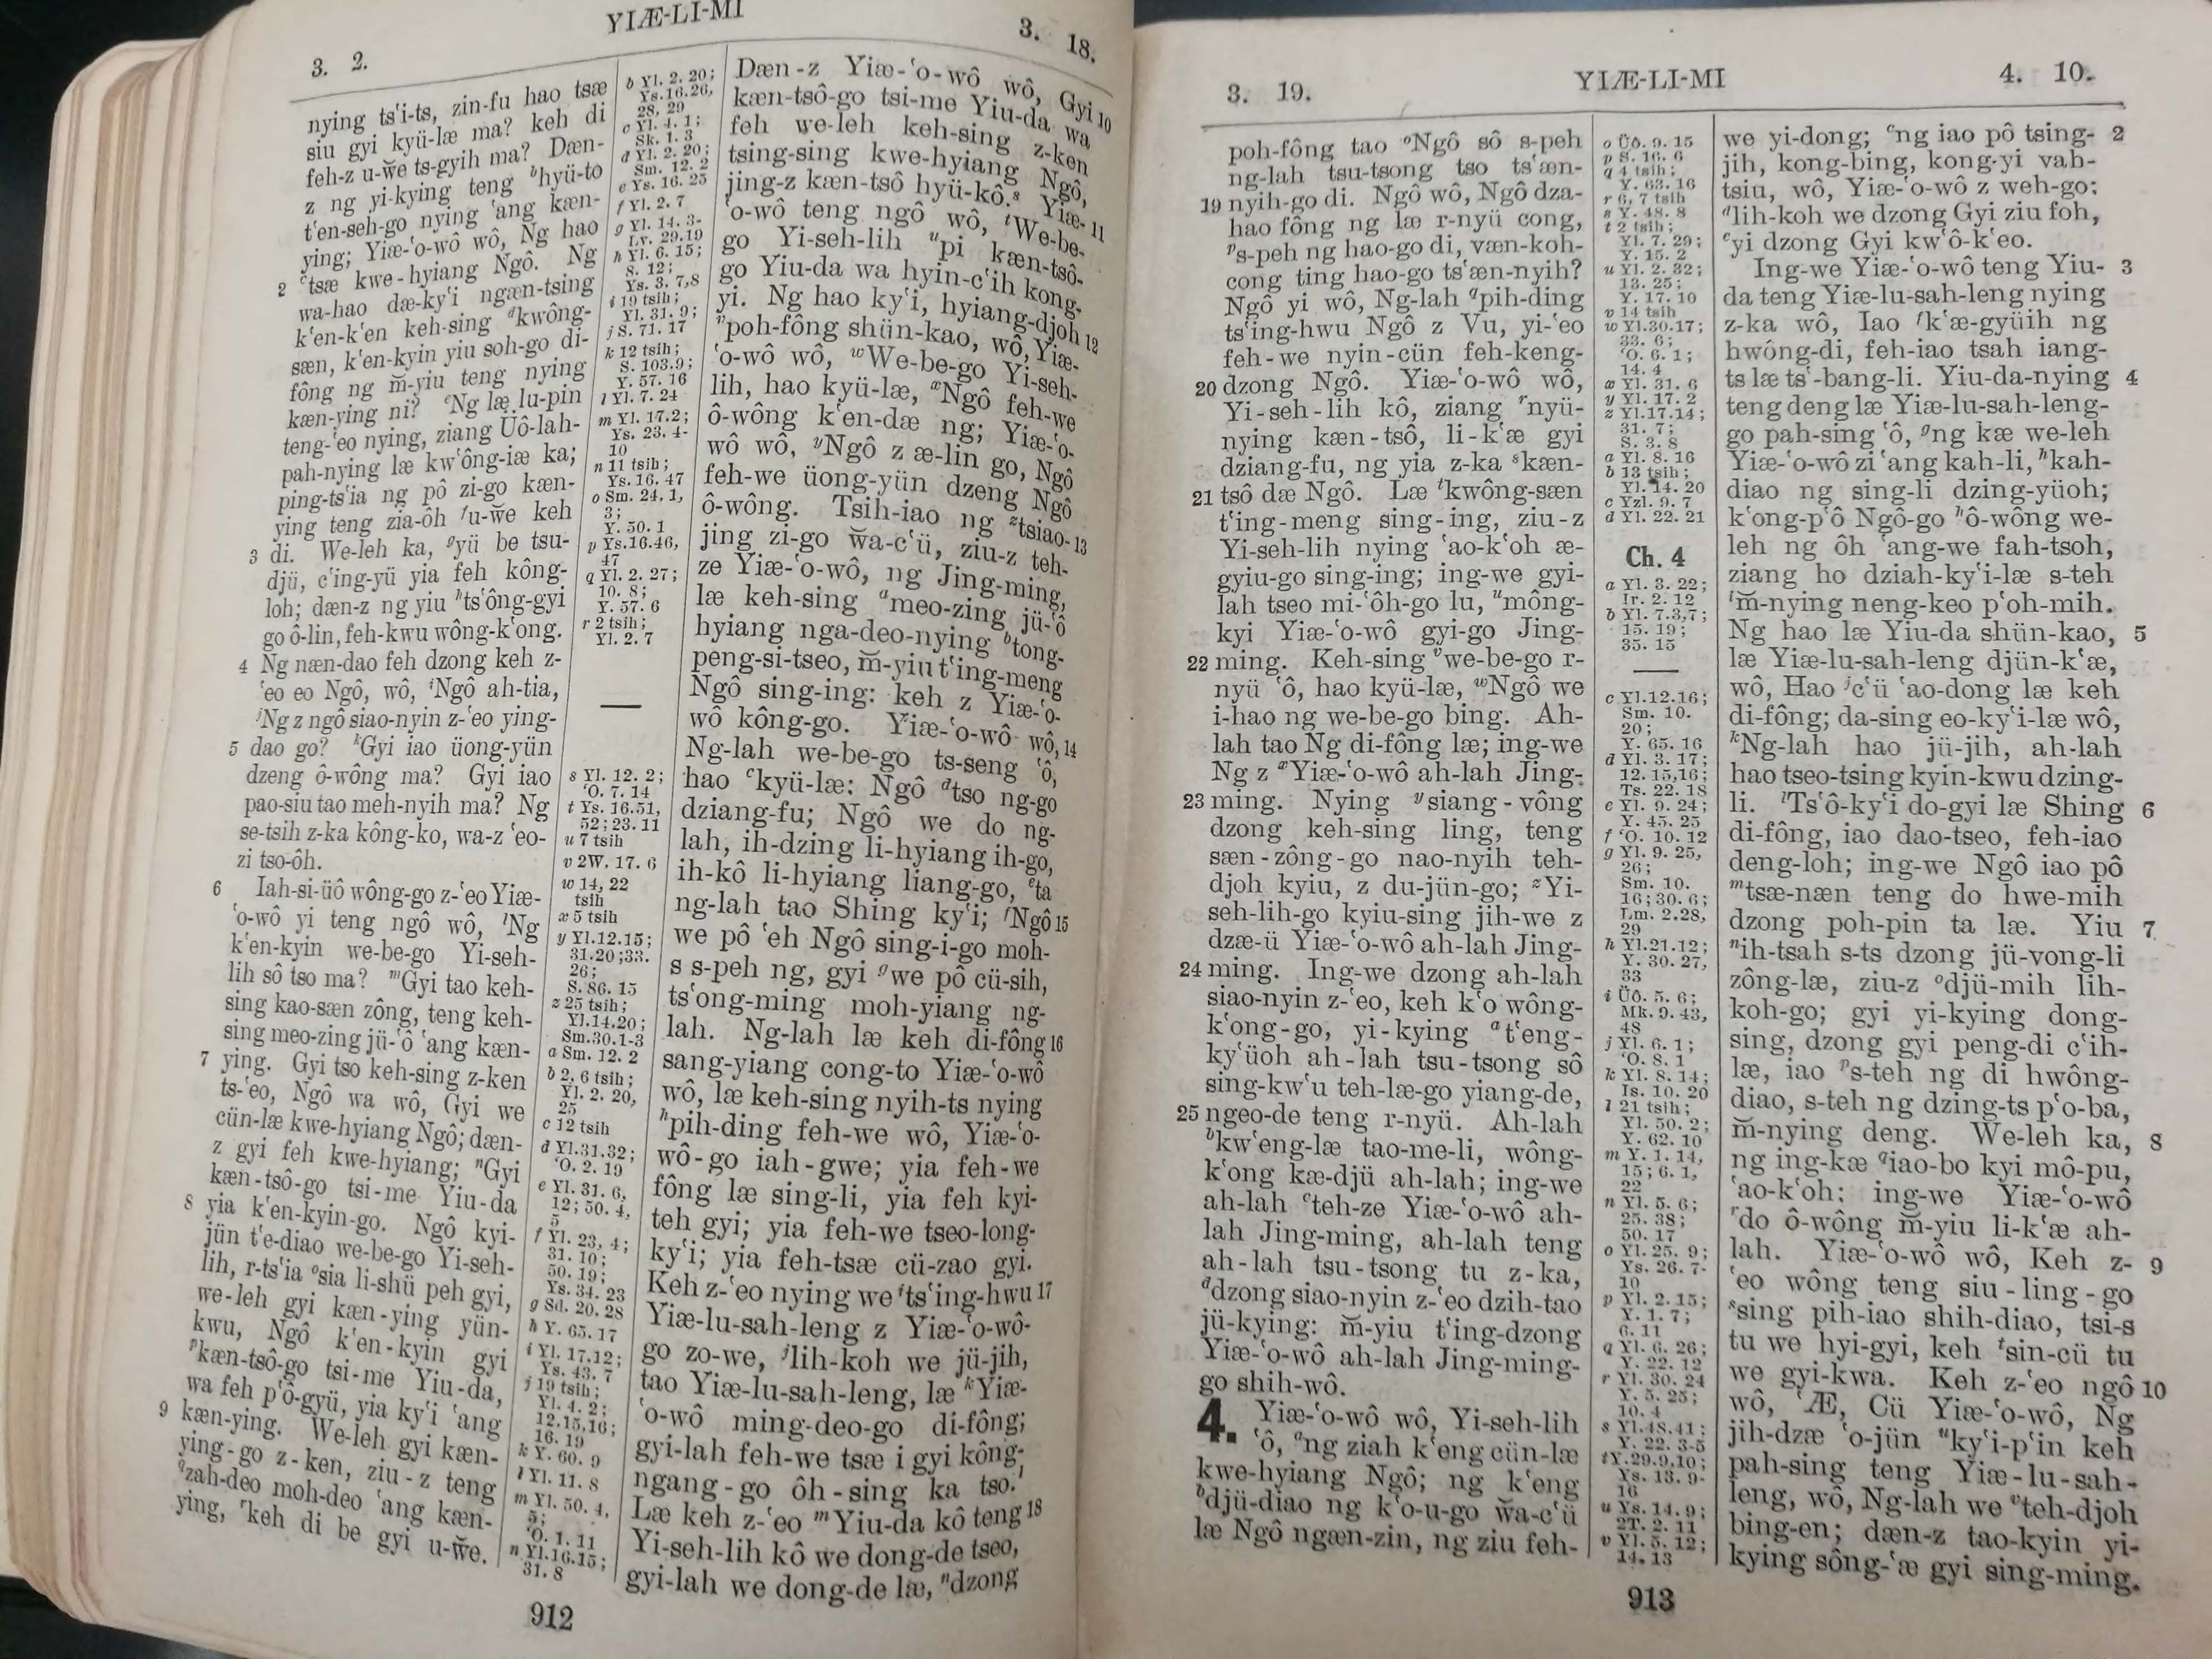 YIÆ-LI-MI
3. 2.
3. 18.
nying ts‘i-ts, zin-fu hao tsæ
siu gyi kyü-læ ma? keh di
feh-z u-w̆e ts-gyih ma? Dæn-
z ng yi-kying teng ᵇhyü-to
t‘en-seh-go nying ‘ang kæn-
ying; Yiæ-‘o-wô wô, Ng hao
ᶜtsæ kwe-hyiang Ngô. Ng
2 wa-hao dæ-ky‘i ngæn-tsing
k‘en-k‘en keh-sing ᵈkwông-
sæn, k‘en-kyin yiu soh-go di-
fông ng m̆-yiu teng nying
kæn-ying ni? ᵉNg læ lu-pin
teng-‘eo nying, ziang Üô-lah-
pah-nying læ kw‘ông-iæ ka;
ping-ts‘ia ng pô zi-go kæn-
ying teng zia-ôh ᶠu-w̆e keh
3 di. We-leh ka, ᵍyü be tsu-
djü, c‘ing-yü yia feh kông-
loh; dæn-z ng yiu ʰts‘ông-gyi
go ô-lin, feh-kwu wông-k‘ong.
4 Ng næn-dao feh dzong keh z-
‘eo eo Ngô, wô, ⁱNgô ah-tia,
ʲNg z ngô siao-nyin z-‘eo ying-
5 dao go? ᵏGyi iao üong-yün
dzeng ô-wông ma? Gyi iao
pao-siu tao meh-nyih ma? Ng
se-tsih z-ka kông-ko, wa-z ‘eo-
zi tso-ôh.
6 Iah-si-üô wông-go z-‘eo Yiæ-
‘o-wô yi teng ngô wô, ˡNg
k‘en-kyin we-be-go Yi-seh-
lih sô tso ma? ᵐGyi tao keh-
sing kao-sæn zông, teng keh-
sing meo-zing jü-‘ô ‘ang kæn-
7 ying. Gyi tso keh-sing z-ken
ts-‘eo, Ngô wa wô, Gyi we
cün-læ kwe-hyiang Ngô; dæn-
z gyi feh kwe-hyiang; ⁿGyi
kæn-tsô-go tsi-me Yiu-da
8 yia k‘en-kyin-go. Ngô kyi-
jün t‘e-diao we-be-go Yi-seh-
lih, r-ts‘ia ᵒsia li-shü peh gyi,
we-leh gyi kæn-ying yün-
kwu, Ngô k‘en-kyin gyi
ᵖkæn-tsô-go tsi-me Yiu-da,
wa feh p‘ô-gyü, yia ky‘i ‘ang
9 kæn-ying. We-leh gyi kæn-
ying-go z-ken, ziu-z teng
ᑫzah-deo moh-deo ‘ang kæn-
ying, ʳkeh di be gyi u-w̆e.
b Yl. 2. 20;
Ys. 16. 26,
28, 29
c Yl. 4. 1;
Sk. 1. 3
d Yl. 2. 20;
Sm. 12. 2
e Ys. 16. 25
f Yl. 2. 7
g Yl. 14. 3-
Lv. 29.19
h Yl. 6. 15;
S. 12;
Ys. 3. 7,8
i 19 tsih;
Yl. 31. 9;
j S. 71. 17
k 12 tsih;
S. 103.9;
Y. 57. 16
l Yl. 7. 24
m Yl. 17.2;
Ys. 23. 4-
10
n 11 tsih;
Ys. 16. 47
o Sm. 24. 1,
3;
Y. 50. 1
p Ys.16.46,
47
q Yl. 2. 27;
10. 8;
Y. 57. 6
r 2 tsih;
Yl. 2. 7
s Yl. 12. 2;
‘O. 7. 14
t Ys. 16.51,
52; 23. 11
u 7 tsih
v 2W. 17. 6
w 14, 22
tsih
x 5 tsih
y Yl.12.15;
31.20;33.
26;
S. 86. 15
z 25 tsih;
Yl.14.20;
Sm.30.1-3
a Sm. 12. 2
b 2, 6 tsih;
Yl. 2. 20,
25
c 12 tsih
d Yl.31.32;
‘O. 2. 19
e Yl. 31. 6,
12; 50. 4,
5
f Yl. 23, 4;
31. 10;
50. 19;
Ys. 34. 23
g Sd. 20. 28
h Y. 65. 17
i Yl. 17.12;
Ys. 43. 7
j 19 tsih;
Yl. 4. 2;
12.15,16;
16. 19
k Y. 60. 9
l Yl. 11. 8
m Yl. 50. 4,
5;
‘O. 1. 11
n Yl.16.15;
31. 8
Dæn-z Yiæ-‘o-wô wô, Gyi 10
kæn-tsô-go tsi-me Yiu-da wa
feh we-leh keh-sing z-ken
tsing-sing kwe-hyiang Ngô,
jing-z kæn-tsô hyü-kô.ˢ Yiæ- 11
‘o-wô teng ngô wô, ᵗWe-be-
go Yi-seh-lih ᵘpi kæn-tsô-
go Yiu-da wa hyin-c‘ih kong-
yi. Ng hao ky‘i, hyiang-djoh 12
ᵛpoh-fông shün-kao, wô, Yiæ-
‘o-wô wô, ʷWe-be-go Yi-seh-
lih, hao kyü-læ, ˣNgô feh-we
ô-wông k‘en-dæ ng; Yiæ-‘o-
wô wô, ʸNgô z æ-lin go, Ngô
feh-we üong-yün dzeng Ngô
ô-wông. Tsih-iao ng ᶻtsiao- 13
jing zi-go w̆a-c‘ü, ziu-z teh-
ze Yiæ-‘o-wô, ng Jing-ming,
læ keh-sing ᵃmeo-zing jü-‘ô
hyiang nga-deo-nying ᵇtong-
peng-si-tseo, m̆-yiu t‘ing-meng
Ngô sing-ing: keh z Yiæ-‘o-
wô kông-go. Yiæ-‘o-wô wô, 14
Ng-lah we-be-go ts-seng ‘ô,
hao ᶜkyü-læ: Ngô ᵈtso ng-go
dziang-fu; Ngô we do ng-
lah, ih-dzing li-hyiang ih-go,
ih-kô li-hyiang liang-go, ᵉta
ng-lah tao Shing ky‘i; ᶠNgô 15
we pô ‘eh Ngô sing-i-go moh-
s s-peh ng, gyi ᵍwe pô cü-sih,
ts‘ong-ming moh-yiang ng-
lah. Ng-lah læ keh di-fông 16
sang-yiang cong-to Yiæ-‘o-wô
wô, læ keh-sing nyih-ts nying
ʰpih-ding feh-we wô, Yiæ-‘o-
wô-go iah-gwe; yia feh-we
fông læ sing-li, yia feh kyi-
teh gyi; yia feh-we tseo-long-
ky‘i; yia feh-tsæ cü-zao gyi.
Keh z-‘eo nying we ⁱts‘ing-hwu 17
Yiæ-lu-sah-leng z Yiæ-‘o-wô-
go zo-we, ʲlih-koh we jü-jih,
tao Yiæ-lu-sah-leng, læ ᵏYiæ-
‘o-wô ming-deo-go di-fông;
gyi-lah feh-we tsæ i gyi kông-
ngang-go ôh-sing ka tso.ˡ
Læ keh z-‘eo ᵐYiu-da kô teng 18
Yi-seh-lih kô we dong-de tseo,
gyi-lah we dong-de læ, ⁿdzong
912
3. 19.
YIÆ-LI-MI
4. 10.
poh-fông tao ᵒNgô sô s-peh
ng-lah tsu-tsong tso ts‘æn-
19 nyih-go di. Ngô wô, Ngô dza-
hao fông ng læ r-nyü cong,
ᵖs-peh ng hao-go di, væn-koh-
cong ting hao-go ts‘æn-nyih?
Ngô yi wô, Ng-lah ᑫpih-ding
ts‘ing-hwu Ngô z Vu, yi-‘eo
feh-we nyin-cün feh-keng-
20 dzong Ngô. Yiæ-‘o-wô wô,
Yi-seh-lih kô, ziang ʳnyü-
nying kæn-tsô, li-k‘æ gyi
dziang-fu, ng yia z-ka ˢkæn-
21 tsô dæ Ngô. Læ ᵗkwông-sæn
t‘ing-meng sing-ing, ziu-z
Yi-seh-lih nying ‘ao-k‘oh æ-
gyiu-go sing-ing; ing-we gyi-
lah tseo mi-‘ôh-go lu, ᵘmông-
kyi Yiæ-‘o-wô gyi-go Jing-
22 ming. Keh-sing ᵛwe-be-go r-
nyü ‘ô, hao kyü-læ, ʷNgô we
i-hao ng we-be-go bing. Ah-
lah tao Ng di-fông læ; ing-we
Ng z ˣYiæ-‘o-wô ah-lah Jing-
23 ming. Nying ʸsiang-vông
dzong keh-sing ling, teng
sæn-zông-go nao-nyih teh-
djoh kyiu, z du-jün-go; ᶻYi-
seh-lih-go kyiu-sing jih-we z
dzæ-ü Yiæ-‘o-wô ah-lah Jing-
24 ming. Ing-we dzong ah-lah
siao-nyin z-‘eo, keh k‘o wông-
k‘ong-go, yi-kying ᵃt‘eng-
ky‘üoh ah-lah tsu-tsong sô
sing-kw‘u teh-læ-go yiang-de,
25 ngeo-de teng r-nyü. Ah-lah
ᵇkw‘eng-læ tao-me-li, wông-
k‘ong kæ-djü ah-lah; ing-we
ah-lah ᶜteh-ze Yiæ-‘o-wô ah-
lah Jing-ming, ah-lah teng
ah-lah tsu-tsong tu z-ka,
ᵈdzong siao-nyin z-‘eo dzih-tao
jü-kying: m̆-yiu t‘ing-dzong
Yiæ-‘o-wô ah-lah Jing-ming-
go shih-wô.
4. Yiæ-‘o-wô wô, Yi-seh-lih
‘ô, ᵃng ziah k‘eng cün-læ
kwe-hyiang Ngô; ng k‘eng
ᵇdjü-diao ng k‘o-u-go w̆a-c‘ü
læ Ngô ngæn-zin, ng ziu feh-
o Üô. 9. 15
p S. 16. 6
q 4 tsih;
Y. 63. 16
r 6, 7 tsih
s Y. 48. 8
t 2 tsih;
Yl. 7. 29;
Y. 15. 2
u Yl. 2. 32;
13. 25;
Y. 17. 10
v 14 tsih
w Yl.30.17;
33. 6;
‘O. 6. 1;
14. 4
x Yl. 31. 6
y Yl. 17. 2
z Yl.17.14;
31. 7;
S. 3. 8
a Yl. 8. 16
b 13 tsih;
Yl. 14. 20
c Yzl. 9. 7
d Yl. 22. 21
Ch. 4
a Yl. 3. 22;
Ir. 2. 12
b Yl. 7.3,7;
15. 19;
35. 15
c Yl.12.16;
Sm. 10.
20;
Y. 65. 16
d Yl. 3. 17;
12. 15,16;
Ts. 22. 18
e Yl. 9. 24;
Y. 45. 25
f ‘O. 10. 12
g Yl. 9. 25,
26;
Sm. 10.
16; 30. 6;
Lm. 2.28,
29
h Yl.21.12;
Y. 30. 27,
33
i Üô. 5. 6;
Mk. 9. 43,
48
j Yl. 6. 1;
‘O. 8. 1
k Yl. 8. 14;
Is. 10. 20
l 21 tsih;
Yl. 50. 2;
Y. 62. 10
m Y. 1. 14,
15; 6. 1,
22
n Yl. 5. 6;
25. 38;
50. 17
o Yl. 25. 9;
Ys. 26. 7-
10
p Yl. 2. 15;
Y. 1. 7;
6. 11
q Yl. 6. 26;
Y. 22. 12
r Yl. 30. 24
Y. 5. 25;
10. 4
s Yl.48.41;
Y. 22. 3-5
t Y.29.9,10;
Ys. 13. 9-
16
u Ys. 14. 9;
2T. 2. 11
v Yl. 5. 12;
14. 13
we yi-dong; ᶜng iao pô tsing- 2
jih, kong-bing, kong-yi vah-
tsiu, wô, Yiæ-‘o-wô z weh-go:
ᵈlih-koh we dzong Gyi ziu foh,
ᵉyi dzong Gyi kw‘ô-k‘eo.
Ing-we Yiæ-‘o-wô teng Yiu- 3
da teng Yiæ-lu-sah-leng nying
z-ka wô, Iao ᶠk‘æ-gyüih ng
hwông-di, feh-iao tsah iang-
ts læ ts‘-bang-li. Yiu-da-nying 4
teng deng læ Yiæ-lu-sah-leng-
go pah-sing ‘ô, ᵍng kæ we-leh
Yiæ-‘o-wô zi ‘ang kah-li, ʰkah-
diao ng sing-li dzing-yüoh;
k‘ong-p‘ô Ngô-go ʰô-wông we-
leh ng ôh ‘ang-we fah-tsoh,
ziang ho dziah-ky‘i-læ s-teh
ⁱm̆-nying neng-keo p‘oh-mih.
Ng hao læ Yiu-da shün-kao, 5
læ Yiæ-lu-sah-leng djün-k‘æ,
wô, Hao ʲc‘ü ‘ao-dong læ keh
di-fông; da-sing eo-ky‘i-læ wô,
ᵏNg-lah hao jü-jih, ah-lah
hao tseo-tsing kyin-kwu dzing-
li. ˡTs‘ô-ky‘i do-gyi læ Shing 6
di-fông, iao dao-tseo, feh-iao
deng-loh; ing-we Ngô iao pô
ᵐtsæ-næn teng do hwe-mih
dzong poh-pin ta læ. Yiu 7
ⁿih-tsah s-ts dzong jü-vong-li
zông-læ, ziu-z ᵒdjü-mih lih-
koh-go; gyi yi-kying dong-
sing, dzong gyi peng-di c‘ih-
læ, iao ᵖs-teh ng di hwông-
diao, s-teh ng dzing-ts p‘o-ba,
m̆-nying deng. We-leh ka, 8
ng ing-kæ ᑫiao-bo kyi mô-pu,
‘ao-k‘oh; ing-we Yiæ-‘o-wô
ʳdo ô-wông m̆-yiu li-k‘æ ah-
lah. Yiæ-‘o-wô wô, Keh z- 9
‘eo wông teng siu-ling-go
ˢsing pih-iao shih-diao, tsi-s
tu we hyi-gyi, keh ᵗsin-cü tu
we gyi-kwa. Keh z-‘eo ngô 10
wô, ‘Æ, Cü Yiæ-‘o-wô, Ng
jih-dzæ ‘o-jün ᵘky‘i-p‘in keh
pah-sing teng Yiæ-lu-sah-
leng, wô, Ng-lah we ᵛteh-djoh
bing-en; dæn-z tao-kyin yi-
kying sông-‘æ gyi sing-ming.
913